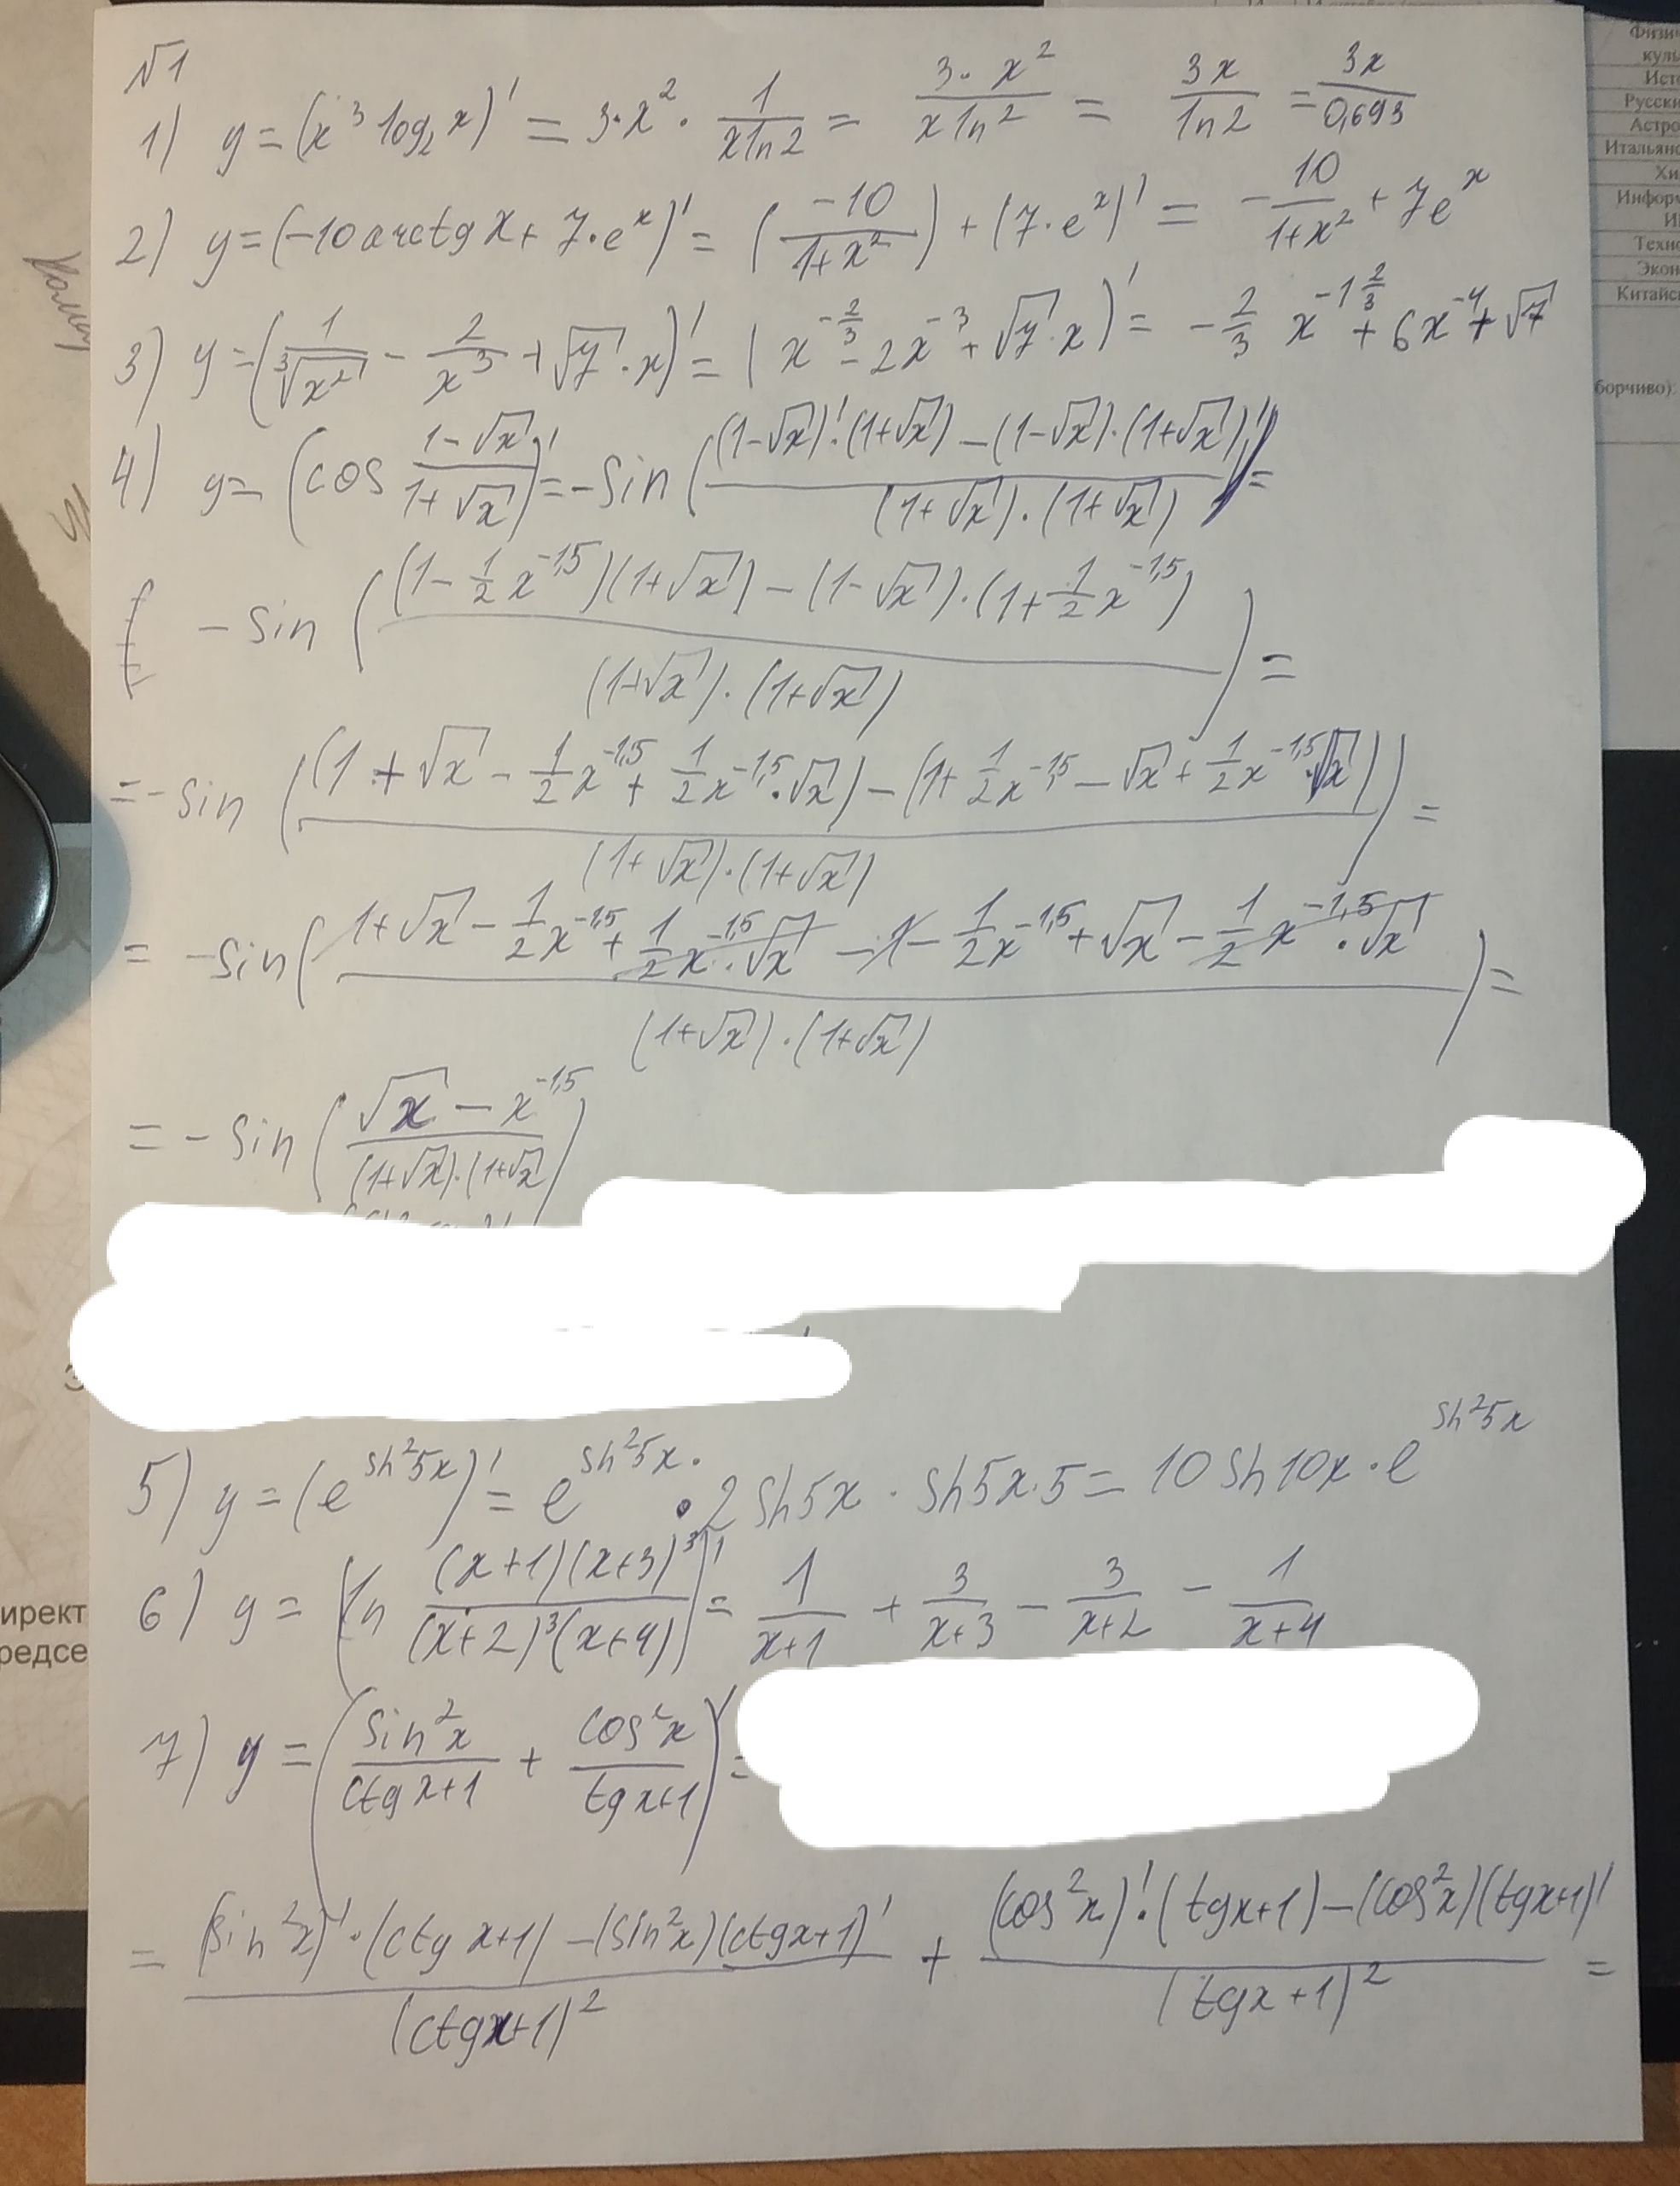 √1
1) y = (x³ log₂ x)' = 3·x² · 1/(x ln 2) = (3·x²)/(x ln 2) = 3x/(ln 2) = 3x/0,693
2) y = (-10 arctg x + 7·eˣ)' = (-10/(1+x²)) + (7·eˣ)' = -10/(1+x²) + 7eˣ
3) y = (1/∛(x²) - 2/x³ + √7·x)' = (x^(-2/3) - 2x^(-3) + √7·x)' = -2/3 x^(-1 2/3) + 6x^(-4) + √7
4) y = (cos (1-√x)/(1+√x))' = -sin (((1-√x)'·(1+√x) - (1-√x)·(1+√x)')/((1+√x)·(1+√x))) =
-sin (((1 - 1/2 x^(-1,5))(1+√x) - (1-√x)·(1 + 1/2 x^(-1,5)))/((1+√x)·(1+√x))) =
= -sin (((1 + √x - 1/2 x^(-1,5) + 1/2 x^(-1,5)·√x) - (1 + 1/2 x^(-1,5) - √x + 1/2 x^(-1,5)·√x))/((1+√x)·(1+√x))) =
= -sin ((1 + √x - 1/2 x^(-1,5) + 1/2 x^(-1,5)·√x - 1 - 1/2 x^(-1,5) + √x - 1/2 x^(-1,5)·√x)/((1+√x)·(1+√x))) =
= -sin ((√x - x^(-1,5))/((1+√x)·(1+√x)))
5) y = (e^(sh²5x))' = e^(sh²5x) · 2 sh5x · sh5x·5 = 10 sh10x · e^(sh²5x)
6) y = (ln ((x+1)(x+3)³)/((x+2)³(x+4)))' = 1/(x+1) + 3/(x+3) - 3/(x+2) - 1/(x+4)
7) y = (sin²x/(ctg x+1) + cos²x/(tg x+1))' =
= ((sin²x)'·(ctg x+1) - (sin²x)(ctgx+1)')/(ctgx+1)² + ((cos²x)'·(tgx+1) - (cos²x)(tgx+1)')/(tgx+1)² =
Русски
Астро
Итальянс
Хи
Информ
Техно
Экон
Китайс
борчиво):
ирект
редсе